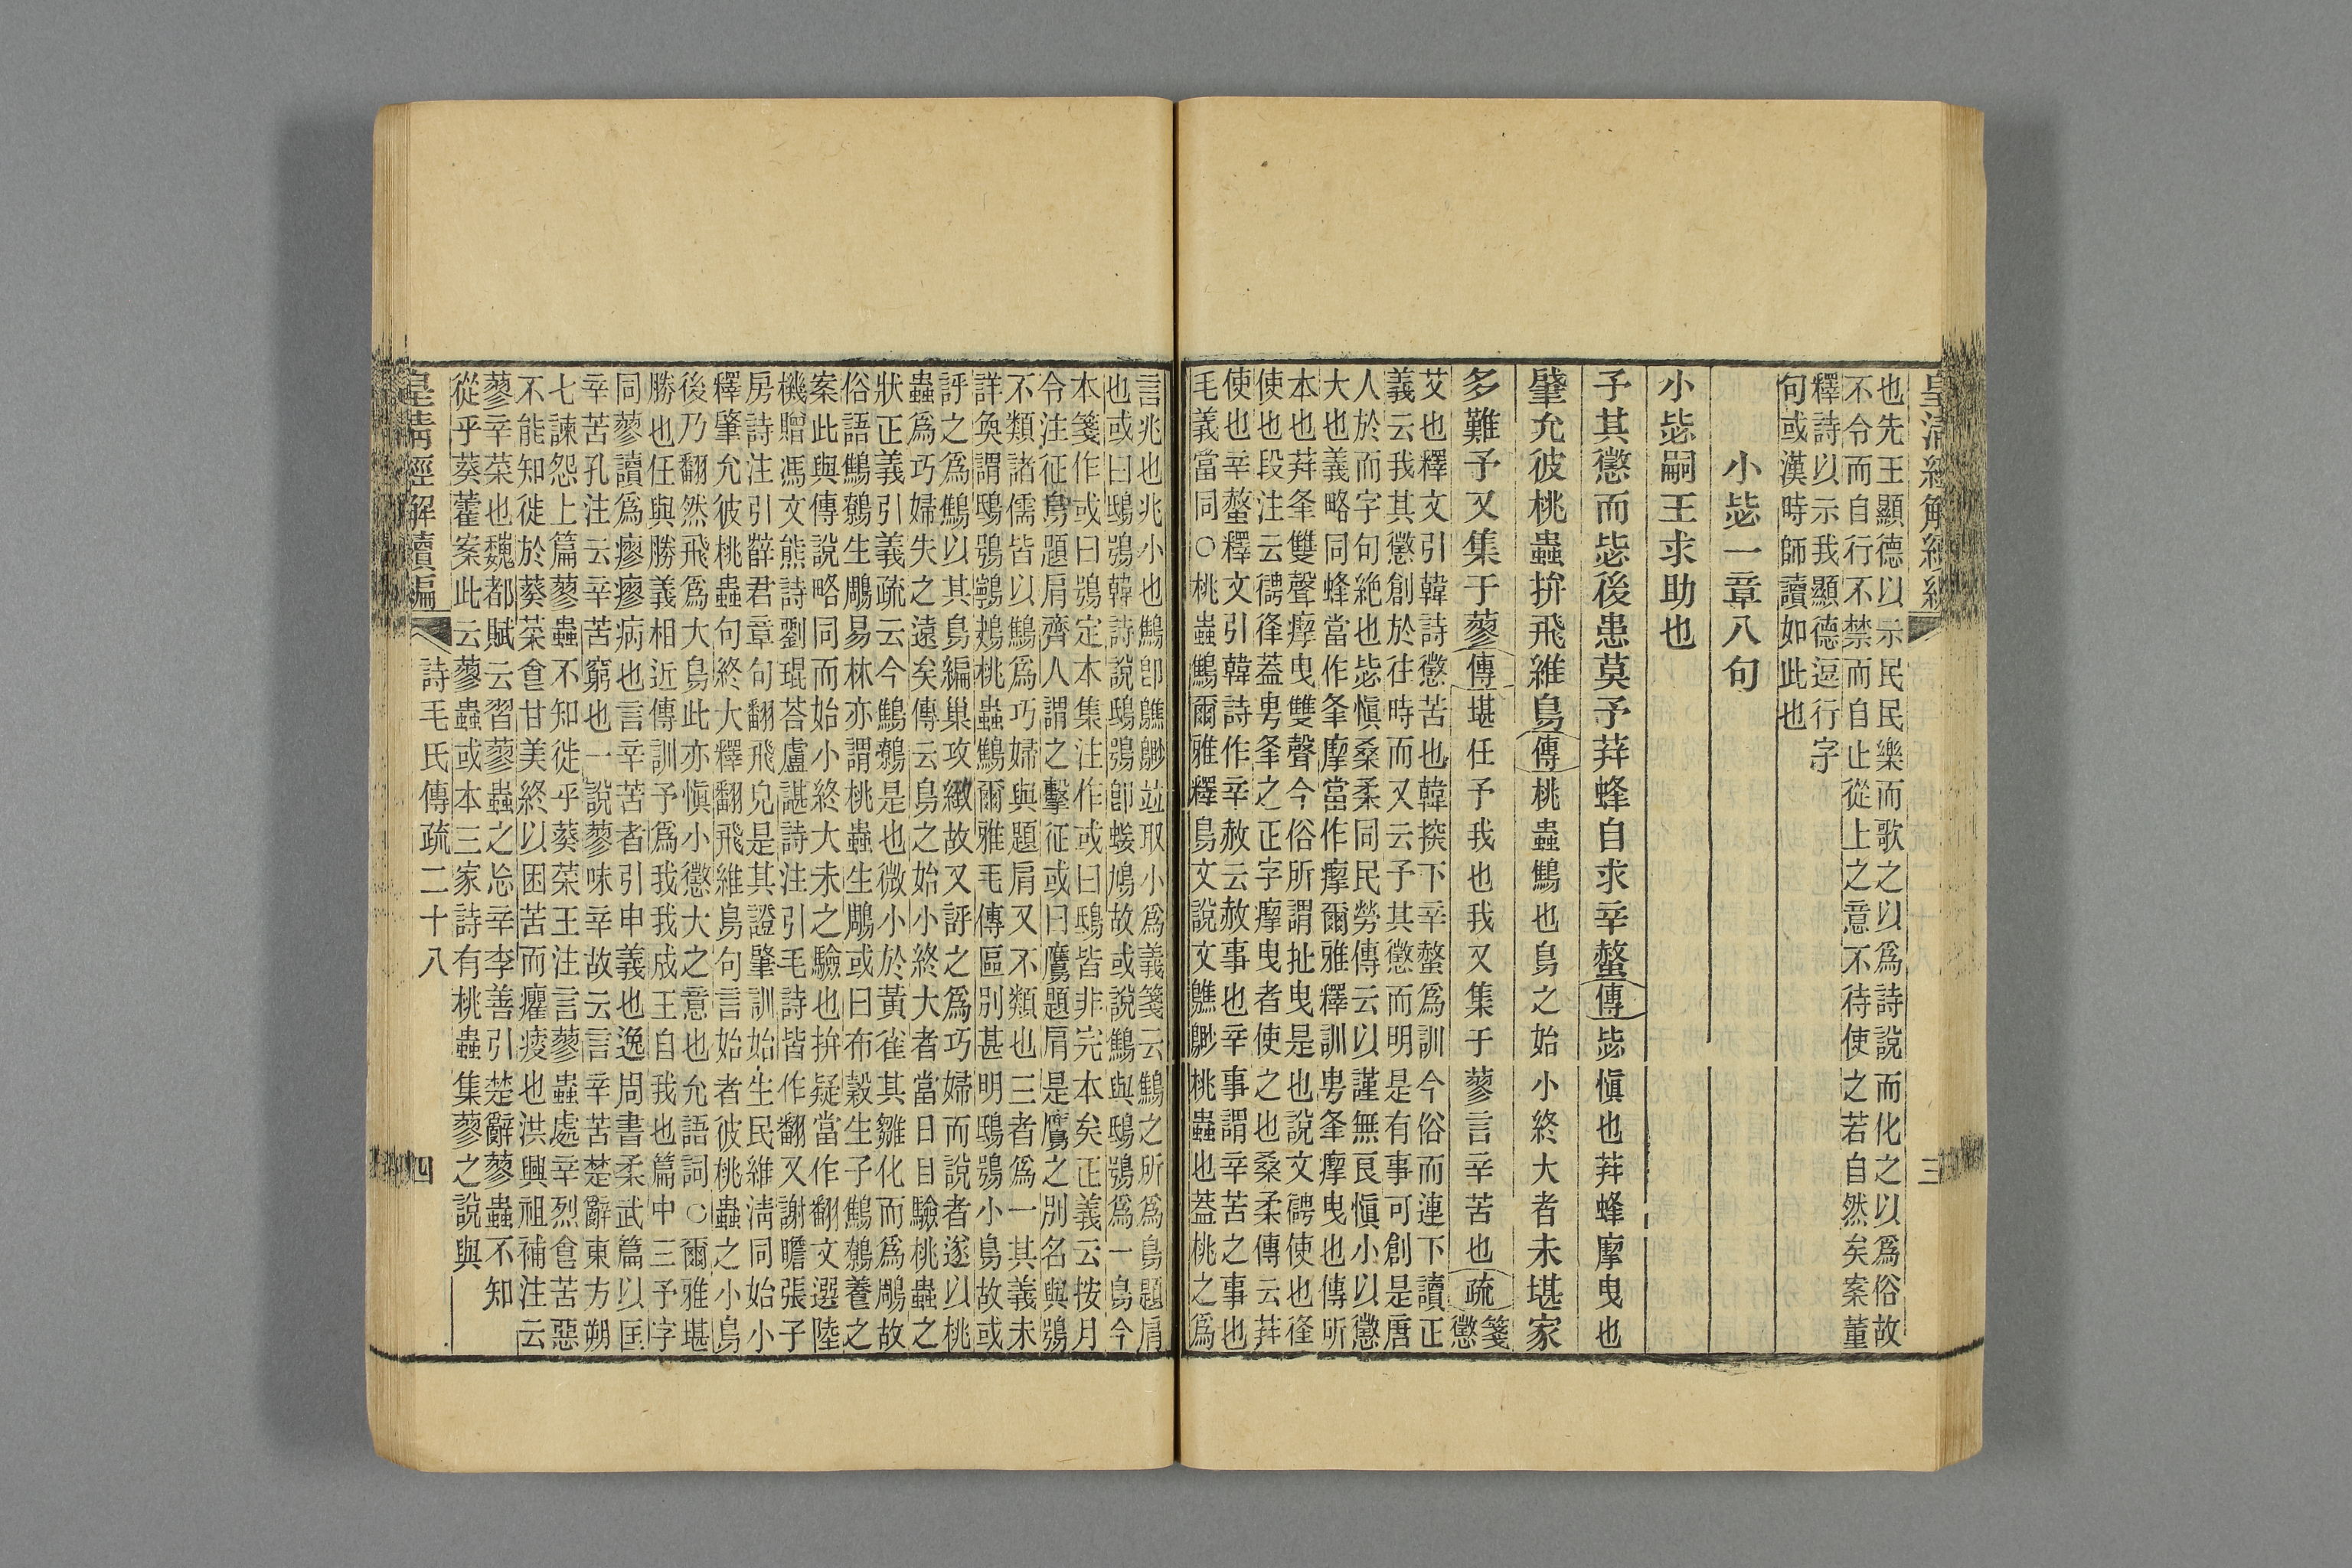 皇清經解續編
三
也先王顯德以示民民樂而歌之以爲詩說而化之以爲俗故
不令而自行不禁而自止從上之意不待使之若自然矣案董
釋詩以示我顯德逗行字
句或漢時師讀如此也
小毖一章八句
小毖嗣王求助也
予其懲而毖後患莫予荓蜂自求辛螫傳毖愼也荓蜂摩曳也
肇允彼桃蟲拚飛維鳥傳桃蟲鷦也鳥之始小終大者未堪家
多難予又集于蓼傳堪任予我也我又集于蓼言辛苦也疏箋
懲
艾也釋文引韓詩懲苦也韓揬下辛螫爲訓今俗而連下讀正
義云我其懲創於往時而又云予其懲而明是有事可創是唐
人於而字句絶也毖愼桑柔同民勞傳云以謹無良愼小以懲
大也義略同蜂當作夆摩當作㾺爾雅釋訓甹夆㾺曳也傳所
本也荓夆雙聲㾺曳雙聲今俗所謂扯曳是也說文䛣使也㣶
使也段注云䛣㣶葢甹夆之正字㾺曳者使之也桑柔傳云荓
使也辛螫釋文引韓詩作辛赦云赦事也辛事謂辛苦之事也
毛義當同○桃蟲鷦爾雅釋鳥文說文鷦䳟桃蟲也葢桃之爲
言兆也兆小也鷦卽鷦䳟竝取小爲義箋云鷦之所爲鳥題肩
也或曰鴟鴞韓詩說鴟鴞卽鴱鳩故或說鷦與鴟鴞爲一鳥今
本箋作或曰鴞定本集注作或曰鴟皆非完本矣正義云按月
令注征鳥題肩齊人謂之擊征或曰鷹題肩是鷹之別名與鴞
不類諸儒皆以鷦爲巧婦與題肩又不類也三者爲一其義未
詳奐謂鴟鴞鸋鴂桃蟲鷦爾雅毛傳區別甚明鴟鴞小鳥故或
評之爲鷦以其鳥編巢攻緻故又評之爲巧婦而說者遂以桃
蟲爲巧婦失之遠矣傳云鳥之始小終大者當日目驗桃蟲之
狀正義引義疏云今鷦鷯是也微小於黃雀其雛化而爲鵰故
俗語鷦鷯生鵰易林亦謂桃蟲生鵰或曰布穀生子鷦鷯養之
案此與傳說略同而始小終大未之驗也拚疑當作翻文選陸
機贈馮文熊詩劉琨荅盧諶詩注引毛詩皆作翻又謝瞻張子
房詩注引薛君章句翻飛皃是其證肇訓始生民維淸同始小
釋肇允彼桃蟲句終大釋翻飛維鳥句言始者彼桃蟲之小鳥
後乃翻然飛爲大鳥此亦愼小懲大之意也允語詞○爾雅堪
勝也任與勝義相近傳訓予爲我我成王自我也篇中三予字
同蓼讀爲瘳瘳病也言辛苦者引申義也逸周書柔武篇以匡
辛苦孔注云辛苦窮也一說蓼味辛故云言辛苦楚辭東方朔
七諫怨上篇蓼蟲不知徙乎葵菜王注言蓼蟲處辛烈食苦惡
不能知徙於葵菜食甘美終以困苦而癯瘦也洪興祖補注云
蓼辛菜也魏都賦云習蓼蟲之忘辛李善引楚辭蓼蟲不知
從乎葵藿案此云蓼蟲或本三家詩有桃蟲集蓼之說與
皇淸經解續編
詩毛氏傳疏二十八
四